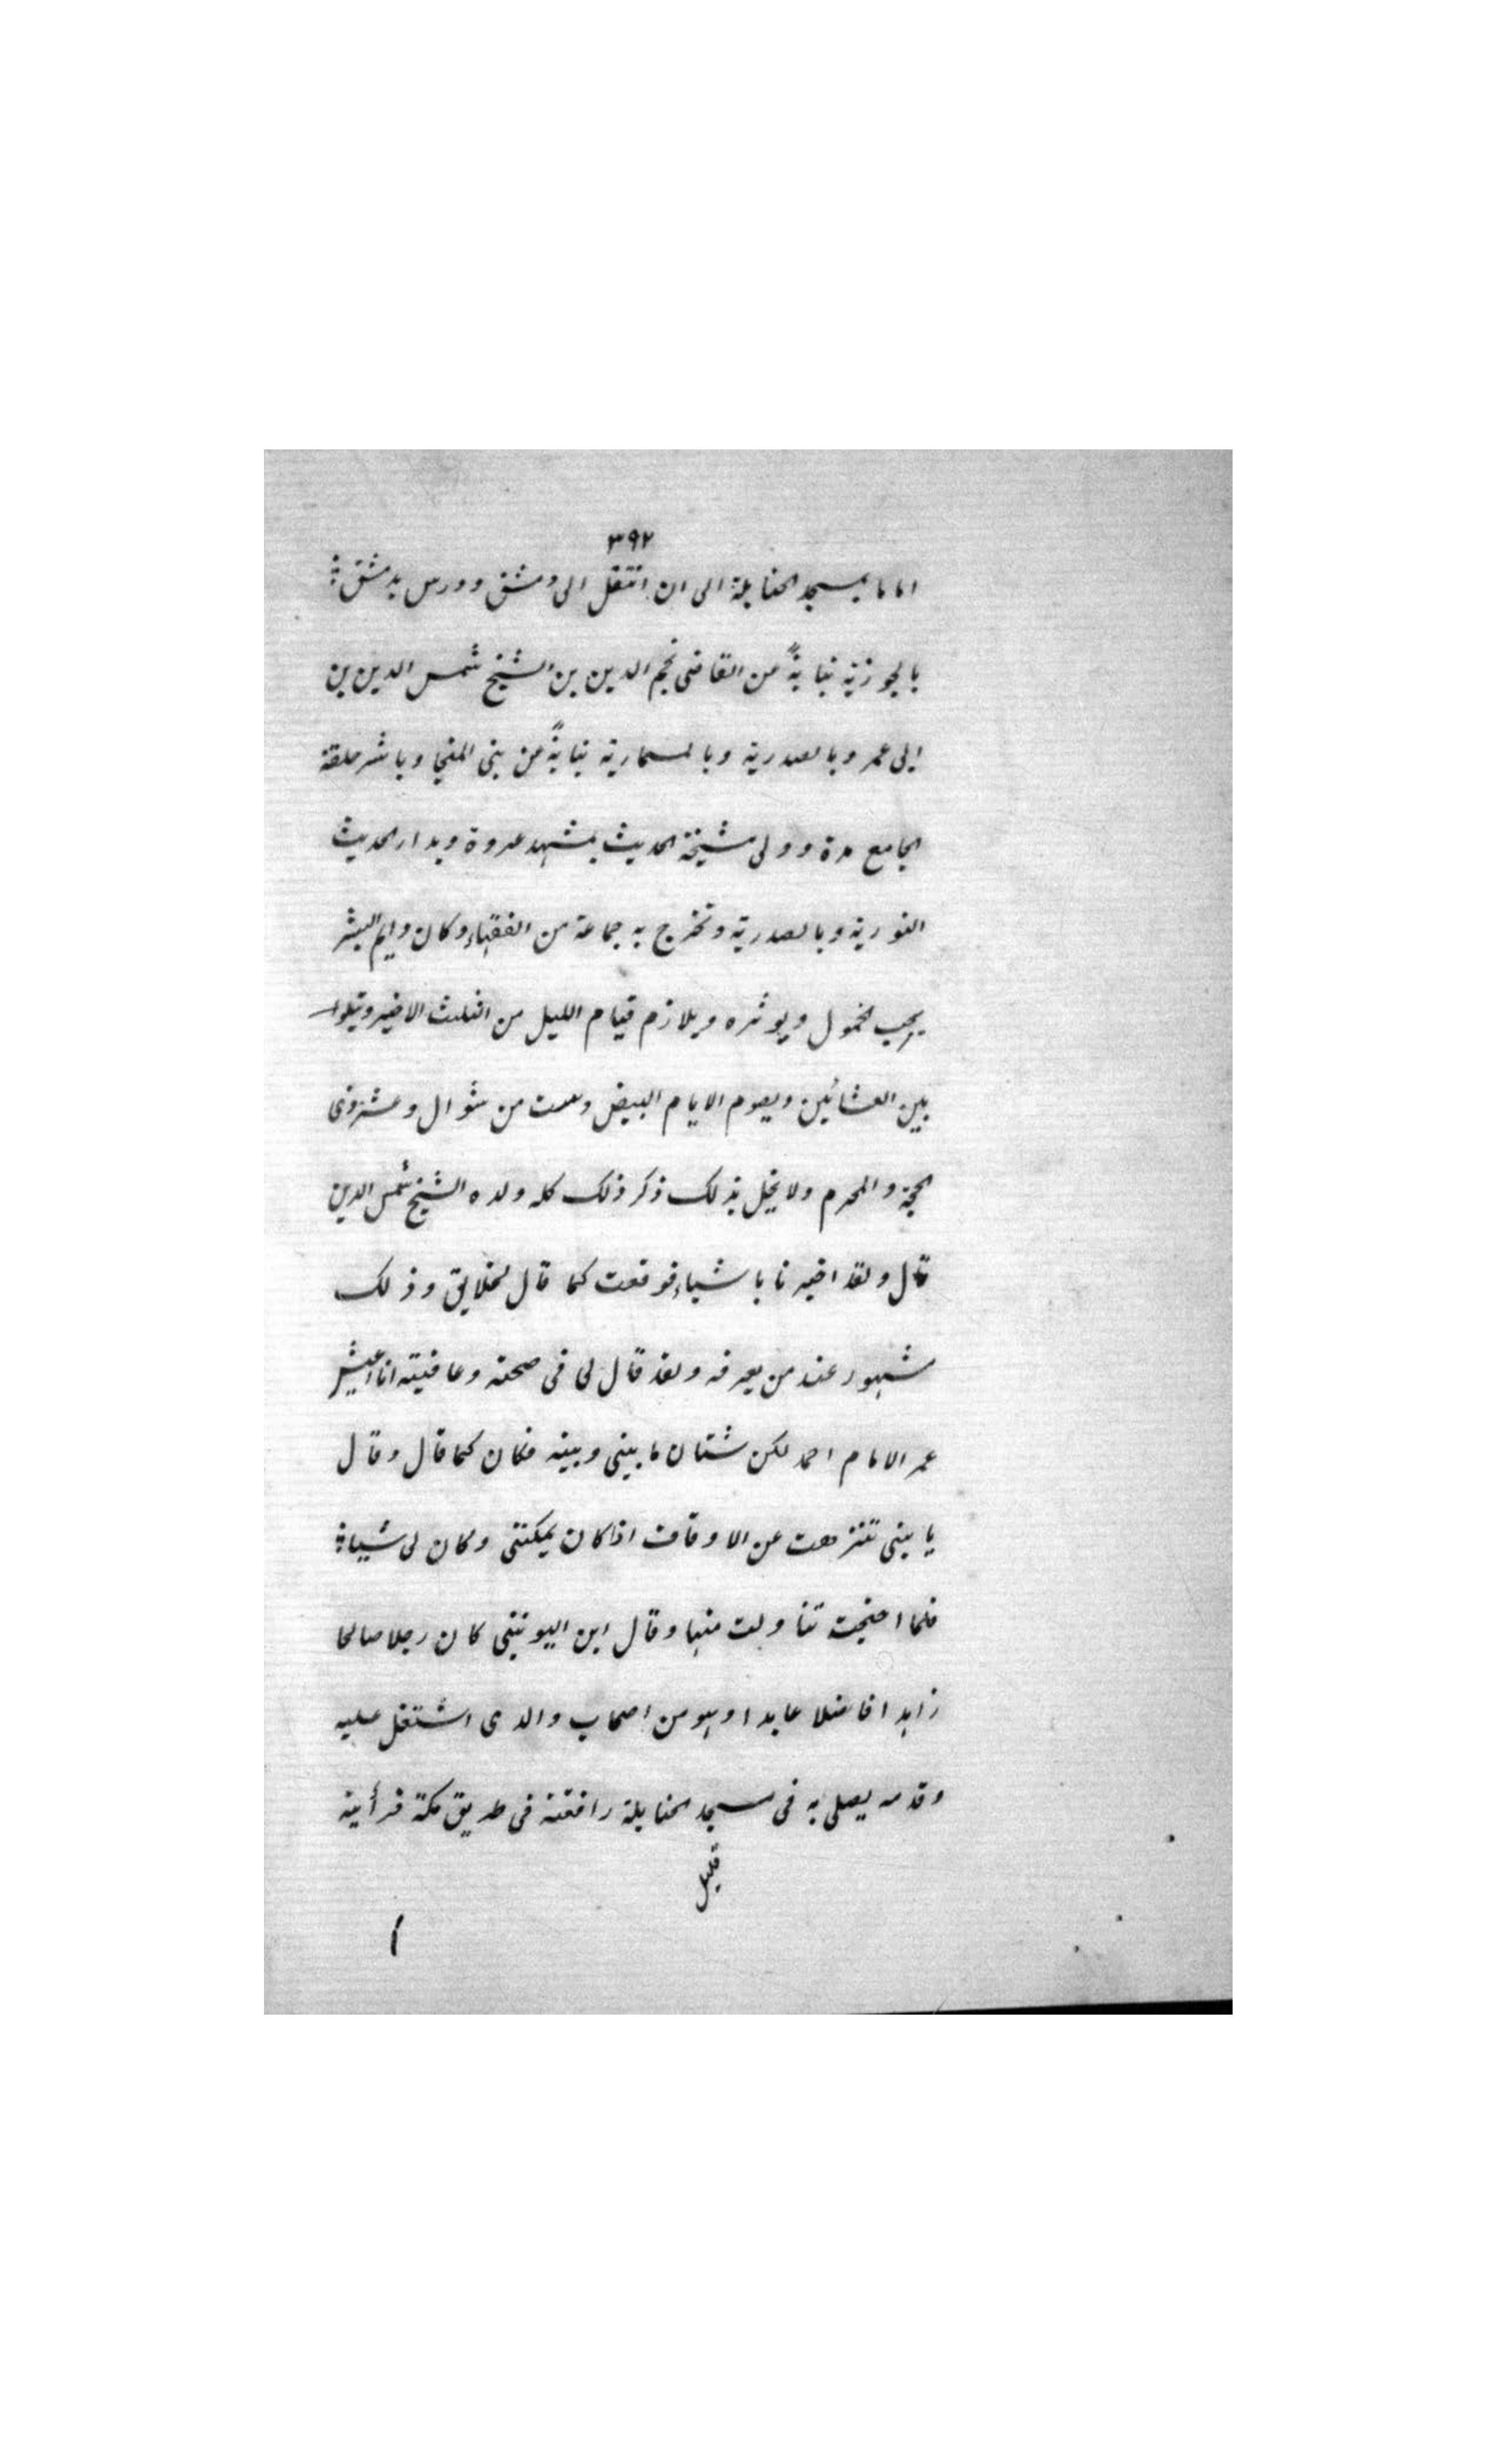 ٣٩٢
اماما بمسجد الحنابلة الى ان انتقل الى دمشق ودرس بدمشق
بالجوزية نيابةً من القاضى نجم الدين بن الشيخ شمس الدين بن
ابى عمر وبالصدرية وبالمسمارية نيابةً عن بنى المنجا وباشر حلقة
الجامع مدة وولى مشيخة الحديث بمشهد عروة وبدار الحديث
النورية وبالصدرية وتخرج به جماعة من الفقهاء وكان دايم البشر
يحب الخمول ويوثره ويلازم قيام الليل من الثلث الاخير ويتلوا
بين العشائين ويصوم الايام البيض وست من شوال وعشر ذى
الحجة والمحرم ولا يخل بذلك ذكر ذلك كله ولده الشيخ شمس الدين
قال ولقد اخبرنا باشياء فوقعت كما قال لخلايق وذلك
مشهور عند من يعرفه ولقد قال لى فى صحته وعافيته انا اعيش
عمر الامام احمد لكن شتان ما بينى وبينه فكان كما قال وقال
يا بنى تنزهت عن الاوقاف اذا كان يمكننى وكان لى شياة
فلما احتجت تناولت منها وقال ابن اليونينى كان رجلا صالحا
زاهدا فاضلا عابدا وهو من اصحاب والدى اشتغل عليه
وقدمه يصلى به فى مسجد الحنابلة رافقته فى طريق مكة فرأيته
قليل